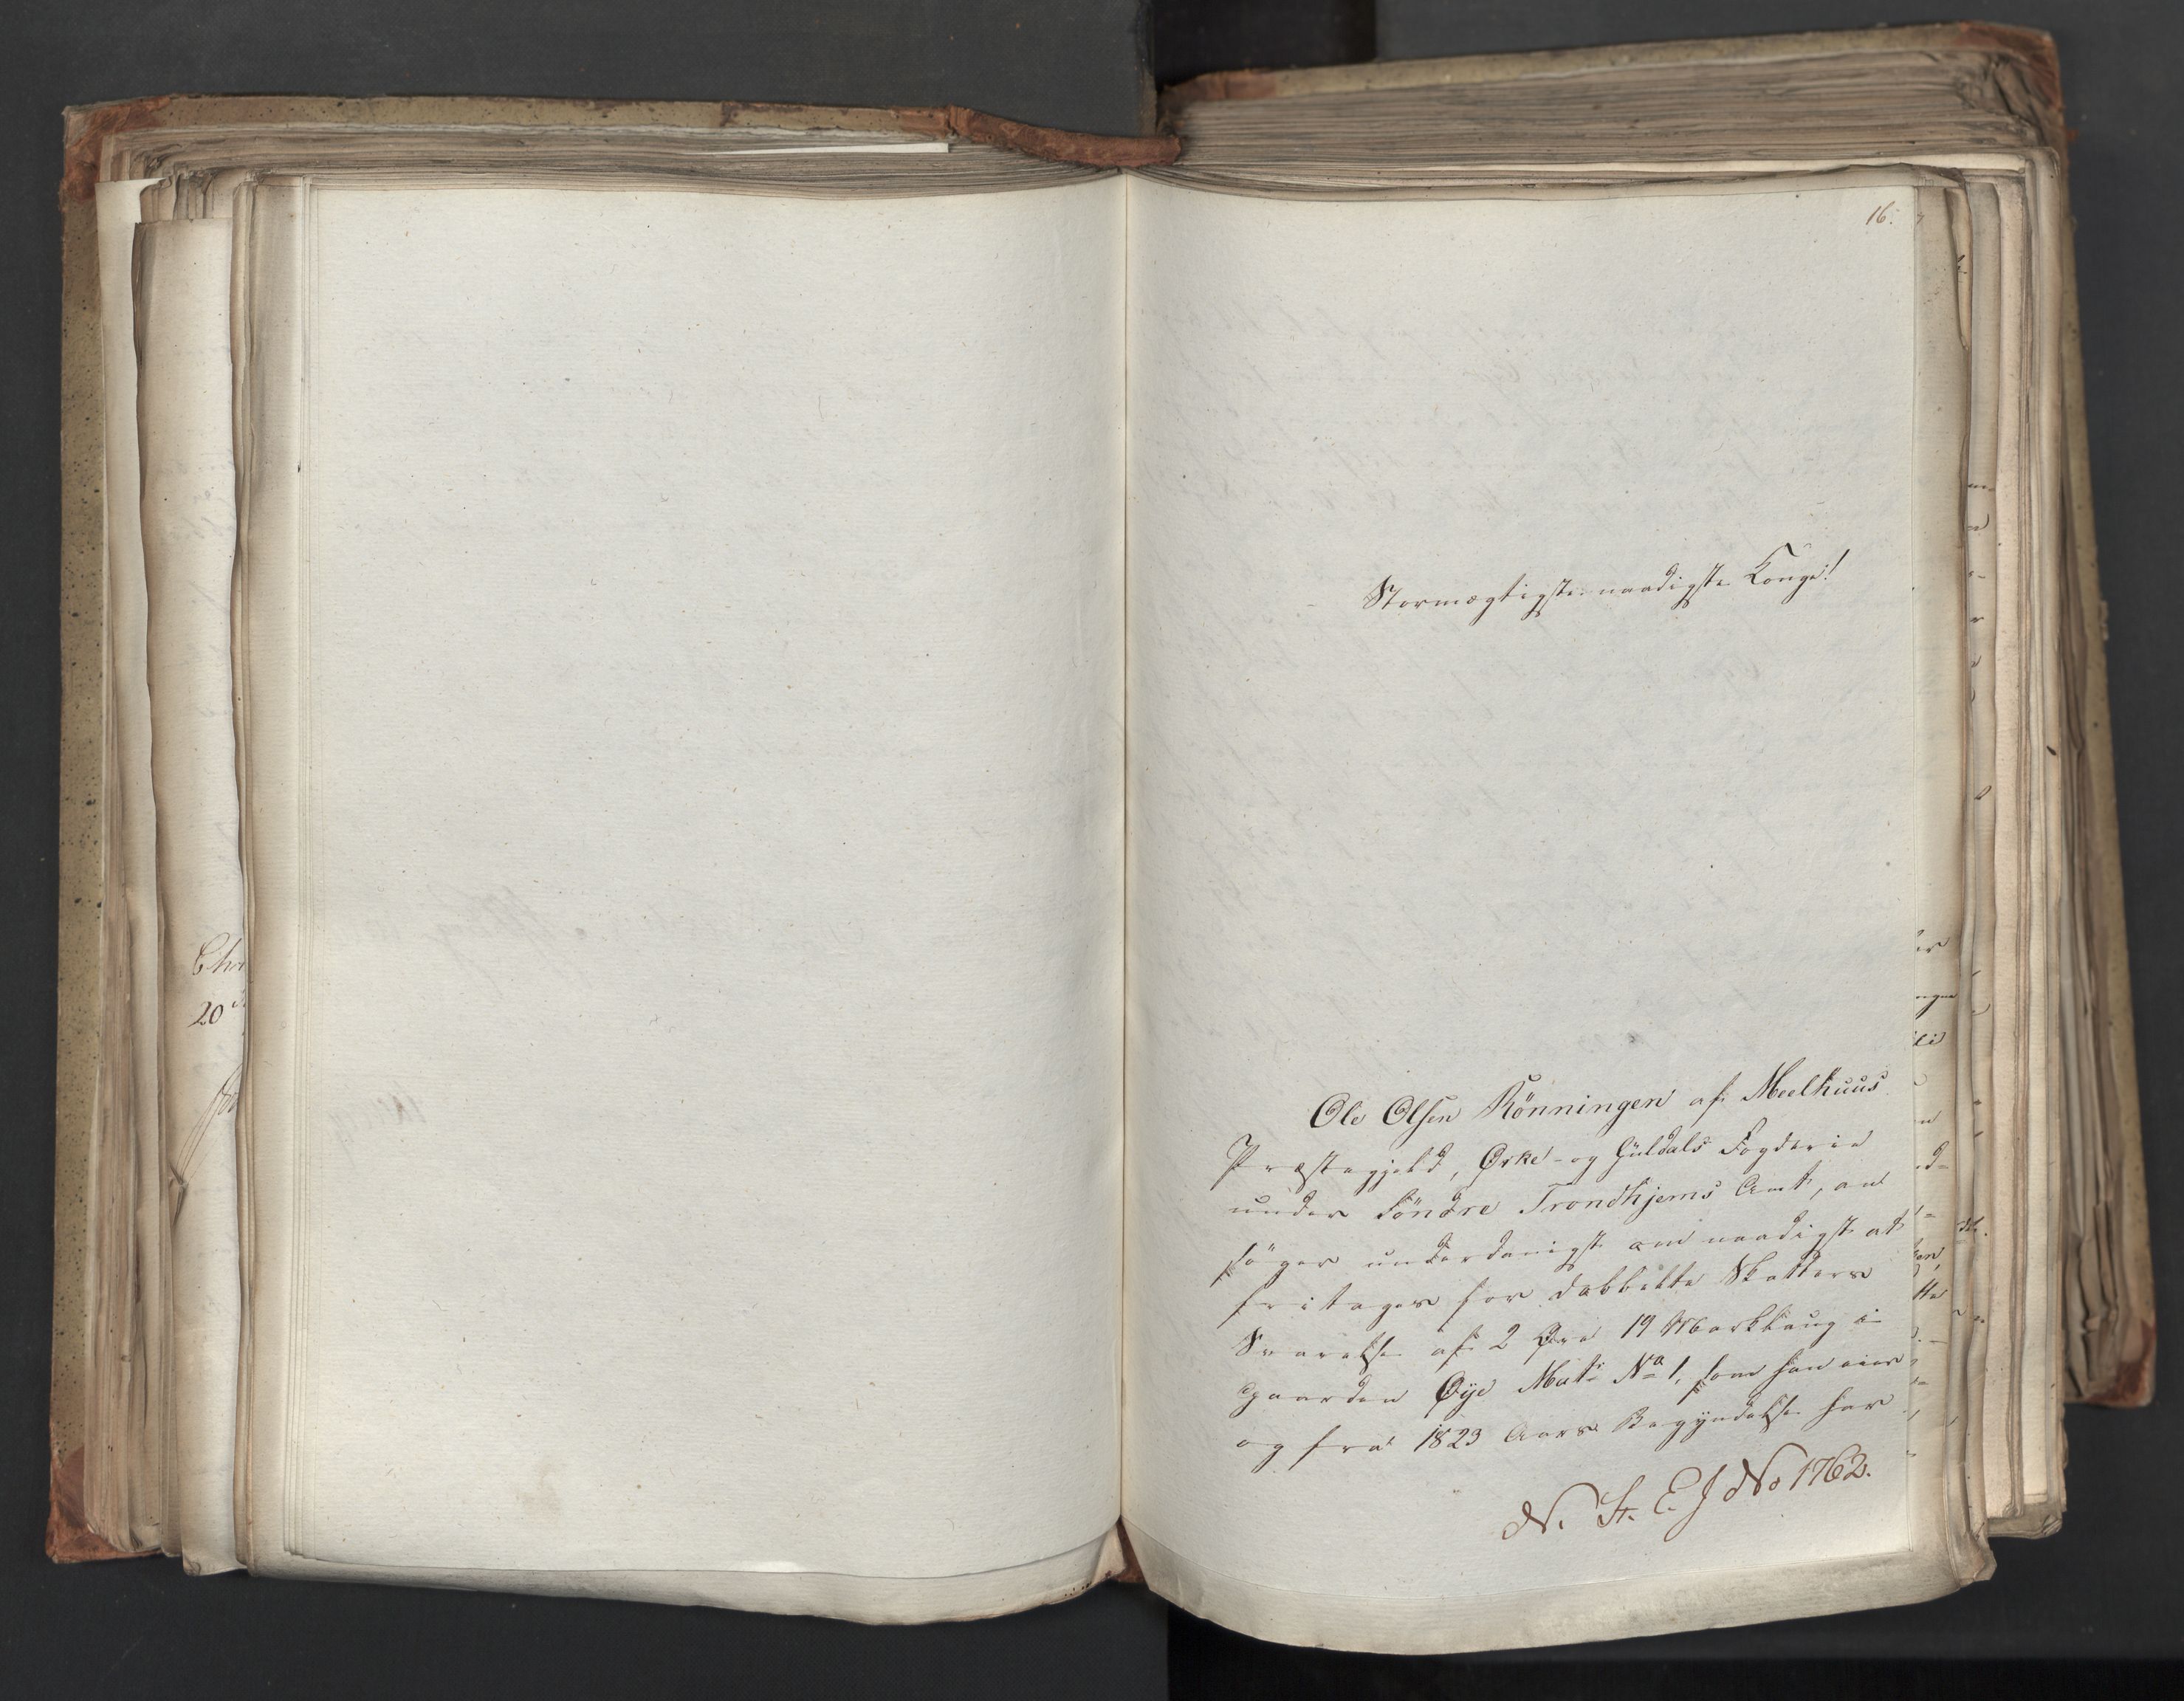 16.
Stormægtigste naadigste Konge!
Ole Olsen Rönningen af Meelhuus
Præstegjeld, Ørke- og Guldals Fogderie
under Söndre Trondhjems Amt, an
söger underdanigst om naadigst at
fritages for dobbelte Skatters
Svarelse af 2 Øre 19 Marklaug i
Gaarden Øÿe Mat: No 1, som han eier
og fra 1823 Aars Begyndelse har
N. St. E. J No 1762.
Chr
20